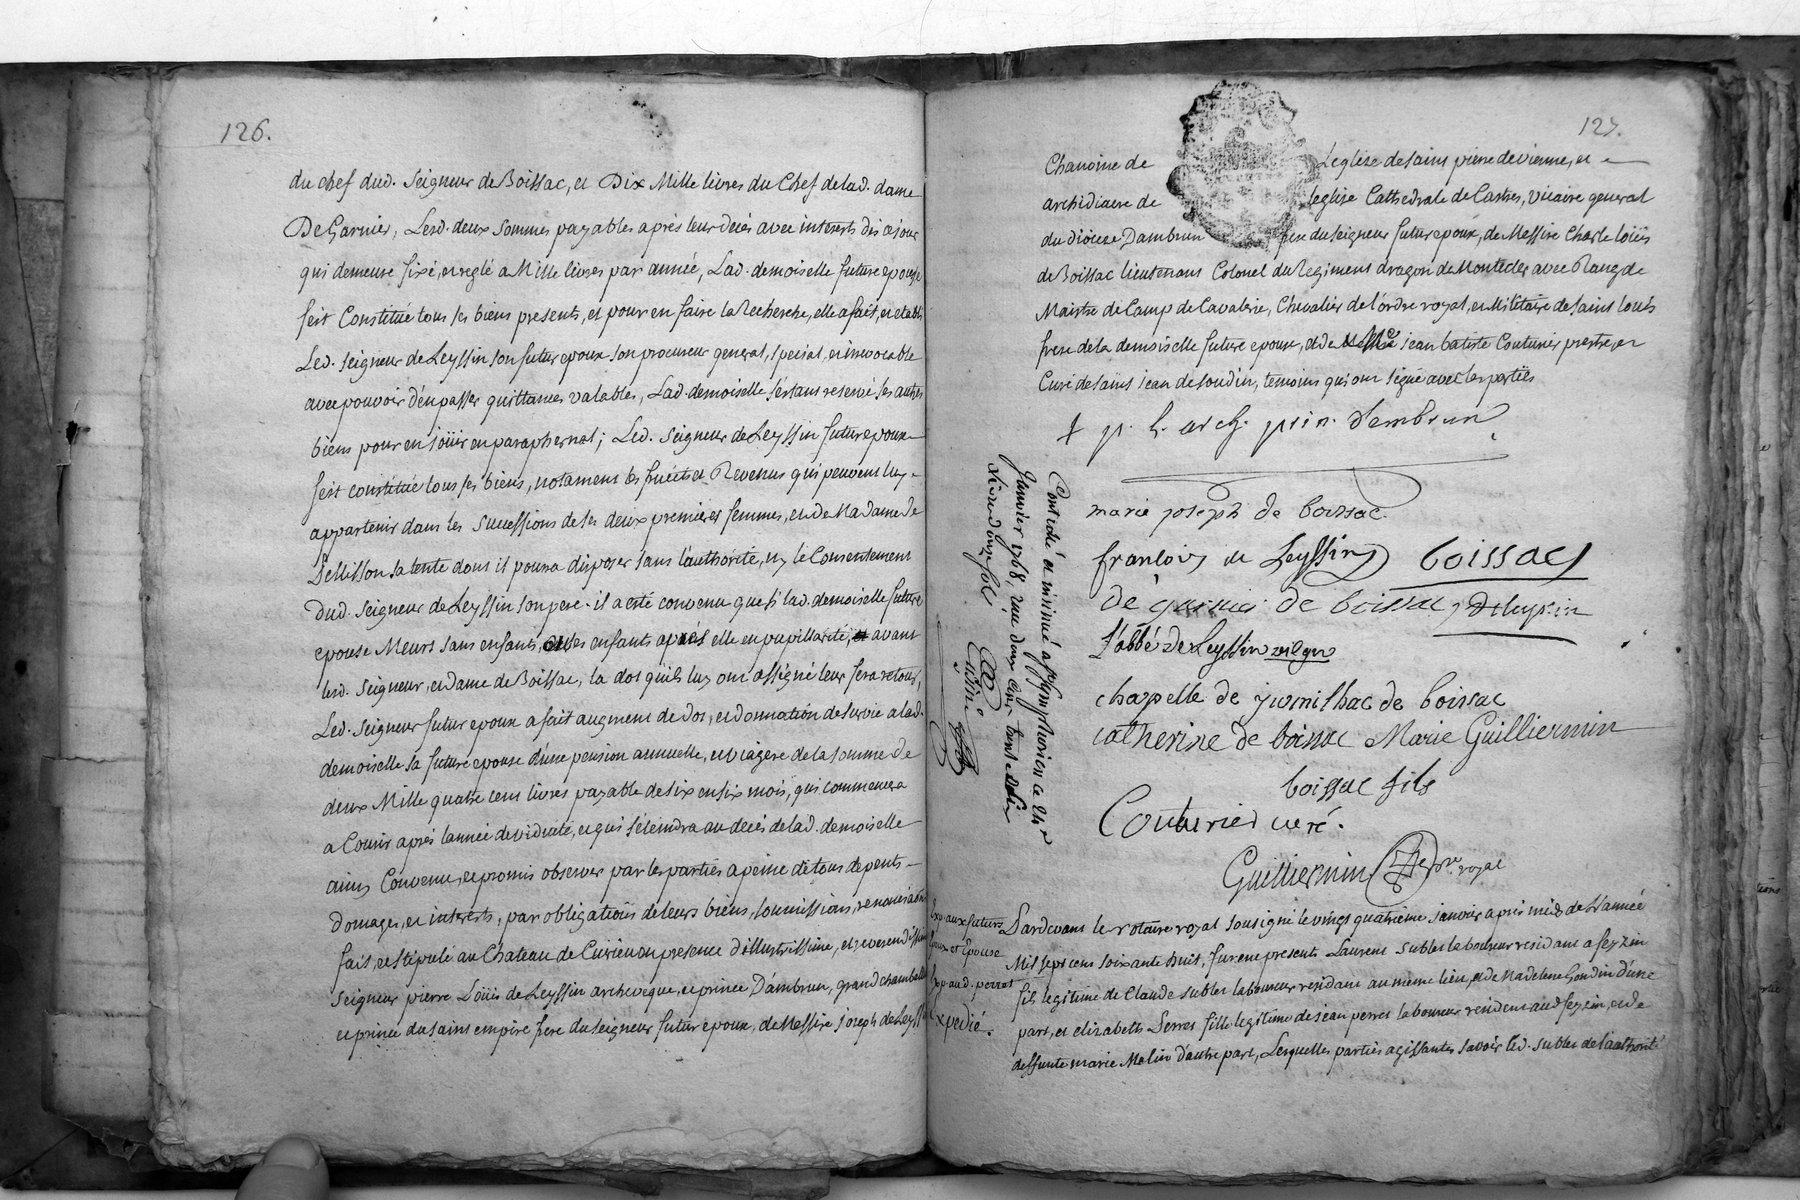 126.
du chef dud. Seigneur de Boissac, et Dix Mille livres du Chef de lad. dame
De Garnier, Lesd. deux sommes payables après leur décès avec interests dès ce jour
qui demeure fixé, et reglé a Mille livres par année, Lad. demoiselle future epouse
s'est Constitué tous ses biens presents, et pour en faire la Recherche, elle a fait, et etabli
Led. Seigneur de Leyssin son futur epoux son procureur general, special, et irrevocable
avec pouvoir d'en passer quittances valables, Lad. demoiselle s'étant reservé ses autres
biens pour en joüir en paraphernal; Led. Seigneur de Leyssin futur epoux
s'est constitué tous ses biens, notament les fruits et Revenus qui peuvent luy
appartenir dans les successions de ses deux premieres femmes, et de Madame de
Pellisson sa tente dont il pourra disposer sans l'authorité, ny le Consentement
Dud. Seigneur de Leyssin son pere. il a esté convenu que si lad. demoiselle future
epouse Meurt sans enfants, ou les enfants après elle en pupillarité, et avant
lesd. Seigneur, et Dame de Boissac, la dot qu'ils luy ont assigné leur fera retour,
Led. Seigneur futur epoux a fait augment de dot, et donnation de survie a lad.
demoiselle sa future epouse d'une pension annuelle, et viagere de la somme de
deux Mille quatre cent livres payable de six en six mois, qui commencera
a Courir après l'année de viduité, et qui s'éteindra au decès de lad. demoiselle
ainsy Convenu, et promis observer par les parties a peine de tous depents
Domages, et interests, par obligations de leurs biens, soumissions, renonciations
fait, et stipulé au Chateau de Cuirieu en presence d'illustrissime, et reverendissime
Seigneur pierre Loüis de Leyssin archeveque, et prince D'ambrun, grand chambellan
et prince du saint empire frere du seigneur futur epoux, de Messire joseph de Leyssin
127.
Chanoine de L'eglise de saint pierre de vienne, et
archidiacre de l'eglise Cathedrale de Castres, vicaire general
du diocese Dambrun frere du seigneur futur epoux, de Messire Charle loüis
de Boissac lieutenant Colonel du Regiment dragon de Montecler avec Rang de
Maistre de Camp de Cavalerie, Chevalier de l'ordre royal, et Militaire de saint louis
frere de la demoiselle future epouse, et de Mre jean batiste Couturier prestre, et
Curé de saint jean de soudin, temoins qui ont signé avec les parties
† p. l. arch. prin. d'embrun
marie joseph de boissac
françois de Leyssin boissac
de garnier de boissac, Deleyssin
l'abbé de Leyssin
chapelle de jumilhac de boissac
catherine de boissac Marie Guilliermin
boissac fils
Couturier curé.
Guilliermin nre royal
Controlé et insinué a st symphorien ce 24e
Janvier 1768,
Exp. aux futurs
epoux et Epouse
Exp. aud. perret
Expedié.
Pardevant le notaire royal sousigné le vingt quatrieme janvier après midy de l'année
Mil sept cens soixante huit, furent presents Laurent sublet laboureur residant a feyzin
fils legitime de Claude sublet laboureur residant au meme lieu, et de Madelene Gondin d'une
part, et elizabeth Perret fille legitime de jean perret laboureur residant aud. feyzin, et de
deffunte marie Molin d'autre part, Lesquelles parties agissantes savoir led. sublet de l'authorité